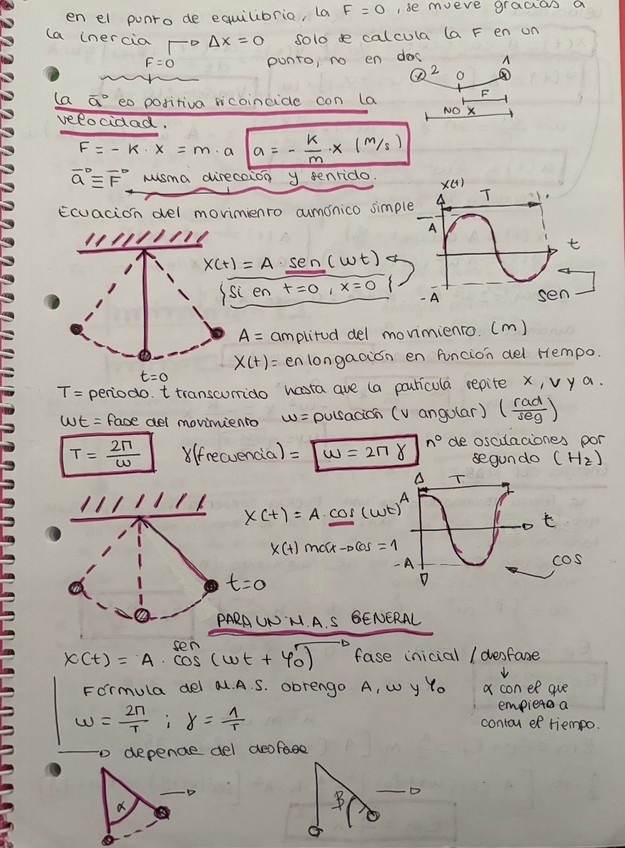 en el punto de equilibrio, la F=0, se mueve gracias a
la inercia → Δx = 0 solo se calcula la F en un
F=0 punto, no en dos
2 0 1
F
NO X
la a⃗ es positiva si coincide con la
velocidad.
F = - K · x = m · a a = - K/m · x (m/s)
a⃗ ≡ F⃗ misma dirección y sentido.
Ecuación del movimiento armónico simple
x(t) T
A
t
-A
sen
x(t) = A · sen (ωt)
{Si en t=0, x=0}
t=0
A = amplitud del movimiento. (m)
x(t) = enlongación en función del tiempo.
T = periodo. t transcurrido hasta que la partícula repite x, v y a.
ωt = fase del movimiento ω = pulsación (v angular) (rad/seg)
T = 2π/ω γ (frecuencia) = ω = 2π γ nº de oscilaciones por
segundo (Hz)
x(t) = A · cos (ωt)
x(t) max → cos = 1
t=0
A T
t
-A
cos
PARA UN M.A.S GENERAL
sen
x(t) = A · cos (ωt + φ₀) → fase inicial / desfase
Fórmula del M.A.S. obtengo A, ω y φ₀
↓
α con el que
empiezo a
contar el tiempo.
ω = 2π/T ; γ = 1/T
→ depende del desfase
α → β →